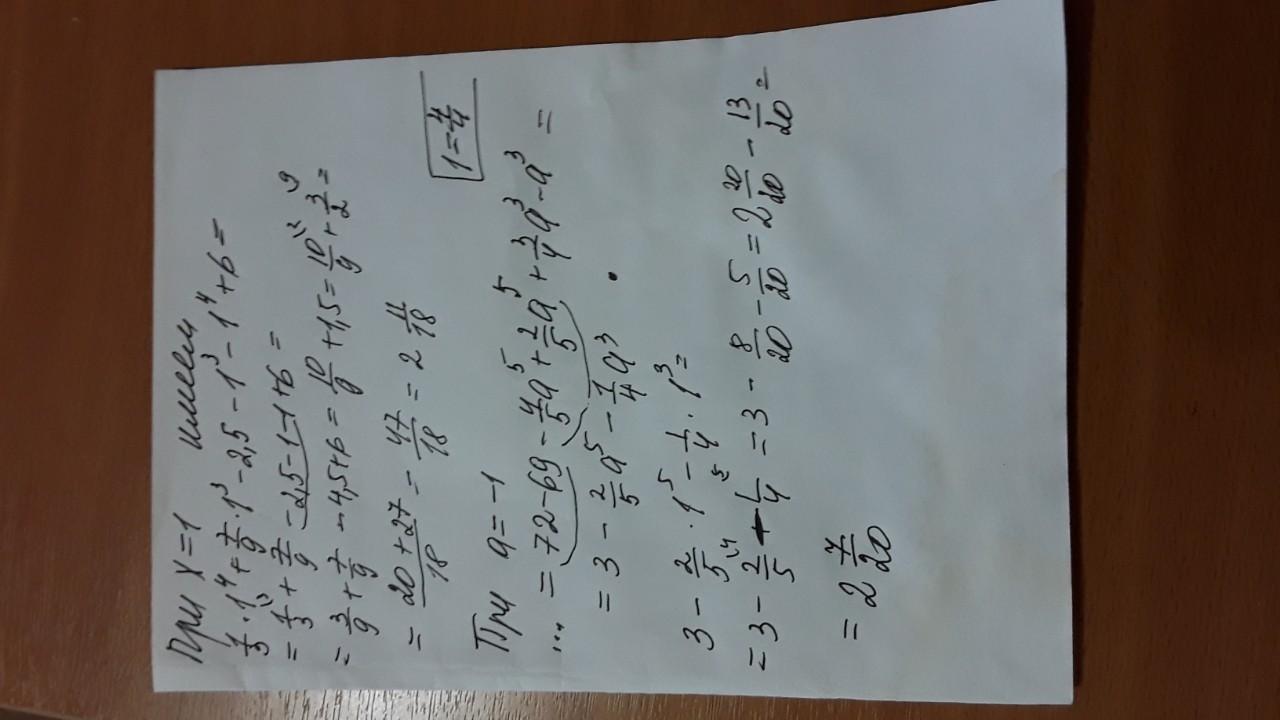 При x=1 имеем
1/3 · 1⁴ + 7/9 · 1³ - 2,5 - 1³ - 1⁴ + 6 =
= 1/3 + 7/9 - 2,5 - 1 - 1 + 6 =
= 3/9 + 7/9 - 4,5 + 6 = 10/9 + 1,5 = 10/9 + 3/2 =
= 20 + 27/18 = 47/18 = 2 11/18
1 = 4/4
При a = -1
... = 72 - 69 - 4/5 a⁵ + 2/5 a⁵ + 3/4 a³ - a³ =
= 3 - 2/5 a⁵ - 1/4 a³
3 - 2/5 · 1⁵ - 1/4 · 1³ =
= 3 - 2/5 - 1/4 = 3 - 8/20 - 5/20 = 2 20/20 - 13/20 =
= 2 7/20